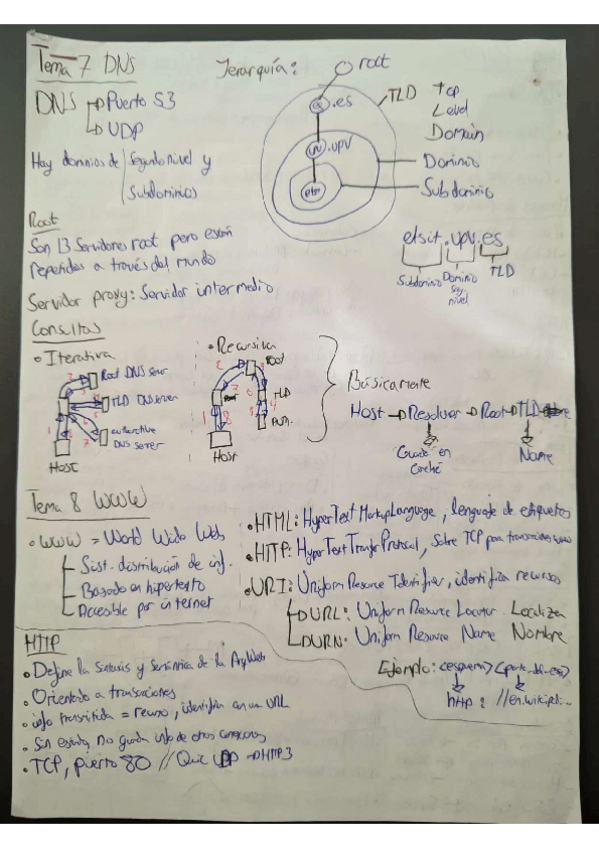 Tema 7 DNS
DNS → Puerto 53
→ UDP
Hay dominios de / Segundo nivel y
Subdominios
Jerarquía:
root
.es
.upv
TLD
Top
Level
Domain
Dominio
Subdominio
etsit.upv.es
Subdominio Dominio TLD
nivel
Root
Son 13 Servidores root pero están
repetidas a través del mundo
Servidor proxy: Servidor intermedio
Consultas
• Iterativa
Root DNS server
TLD DNS server
authoritative
DNS server
Host
• Recursiva
Root
TLD
Host
Básicamente
Host → Resolver → Root → TLD
Guarda en
caché
Name
Tema 8 WWW
• WWW = World Wide Web
Sist. distribución de inf.
Basado en hipertexto
Accesible por internet
• HTML: HyperText Markup Language, lenguaje de etiquetas
• HTTP: HyperText Transfer Protocol, sobre TCP para transacciones www
• URI: Uniform Resource Identifier, identifica recursos
URL: Uniform Resource Locator Localiza
URN: Uniform Resource Name Nombre
Ejemplo: <esquema>
http: //en.wikipedi...
HTTP
• Define la sintaxis y semántica de la Arq Web
• Orientado a transacciones
• info transmitida = recurso, identifica en un URL
• Sin estado, No guarda info de otras conexiones
• TCP, puerto 80 // Quic UDP → HTTP3